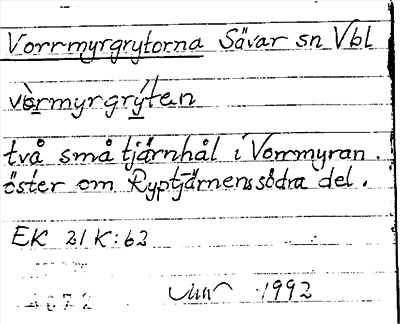 Vorrmyrgrytorna Sävar sn Vbl
vòrmyrgrýten
två små tjärnhål i Vorrmyran.
öster om Ryptjärnens södra del.
EK 21K:62
1992